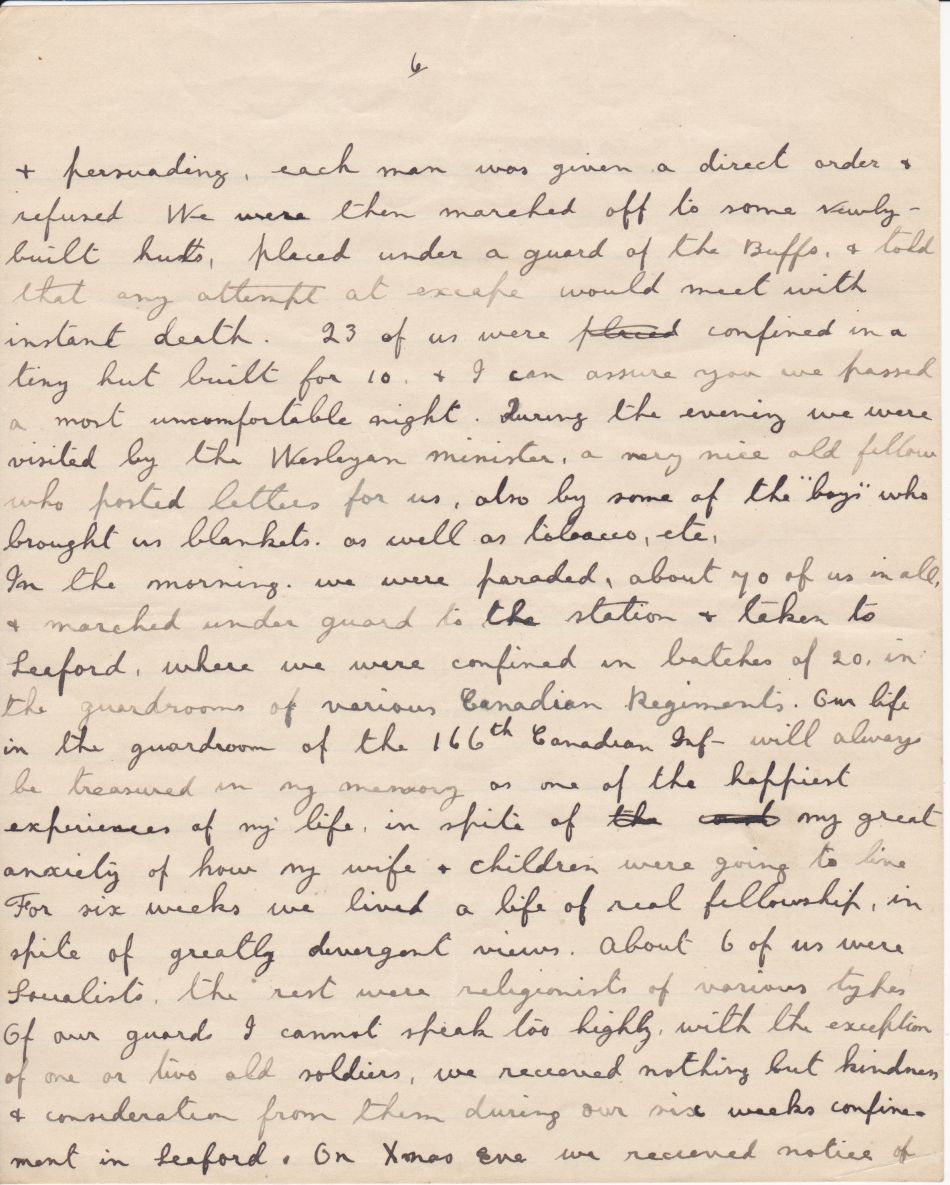 6
+ persuading, each man was given a direct order +
refused We were then marched off to some newly-
built huts, placed under a guard of the Buffs, + told
that any attempt at excape would meet with
instant death. 23 of us were placed confined in a
tiny hut built for 10. + I can assure you we passed
a most uncomfortable night. During the evening we were
visited by the Wesleyan minister, a very nice old fellow
who posted letters for us, also by some of the "boys" who
brought us blankets. as well as tobacco, etc,
In the morning. we were paraded, about 70 of us in all,
+ marched under guard to the station + taken to
Seaford, where we were confined in batches of 20, in
the guardrooms of various Canadian Regiments. Our life
in the guardroom of the 166th Canadian Inf- will always
be treasured in my memory as one of the happiest
experiences of my life, in spite of the my great
anxiety of how my wife + children were going to live
For six weeks we lived a life of real fellowship, in
spite of greatly divergent views. About 6 of us were
Socialists, the rest were religionists of various types
Of our guards I cannot speak too highly, with the exception
of one or two old soldiers, we recieved nothing but kindness
+ consideration from them during our six weeks confine-
ment in Seaford. On Xmas Eve we recieved notice of